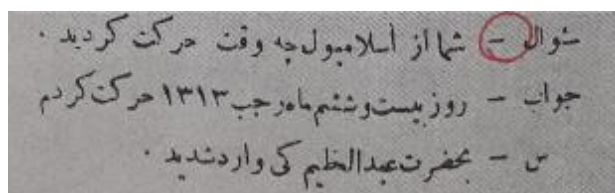 سئوال - شما از اسلامبول چه وقت حرکت کردید .
جواب - روز بیست و ششم ماه رجب ۱۳۱۳ حرکت کردم
س - بحضرت عبدالعظیم کی وارد شدید .